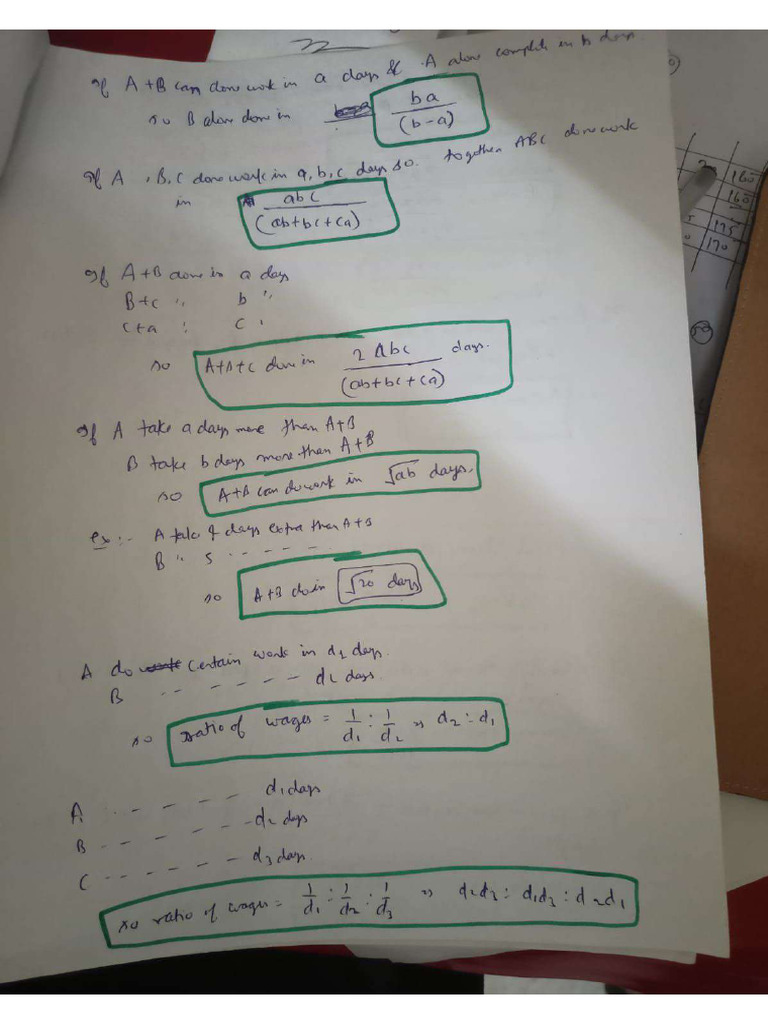 If A+B can done work in a days & A alone complete in b days
so B alone done in ba/(b-a)
If A, B, C done work in a, b, c days so together ABC done work
in abc/(ab+bc+ca)
If A+B done in a days
B+c " b "
c+a " C "
so A+B+C done in 2abc/(ab+bc+ca) days.
If A take a days more than A+B
B take b days more than A+B
so A+B can do work in √ab days.
ex:- A take 4 days extra than A+B
B " 5 - - - - -
so A+B do in √20 days
A do certain work in d1 days
B - - - - - - - d2 days
so ratio of wages = 1/d1 : 1/d2 ⇒ d2 : d1
A - - - - - - d1 days
B - - - - - - - d2 days
C - - - - - - d3 days.
so ratio of wages = 1/d1 : 1/d2 : 1/d3 ⇒ d2d3 : d1d3 : d2d1
160
160
175
170